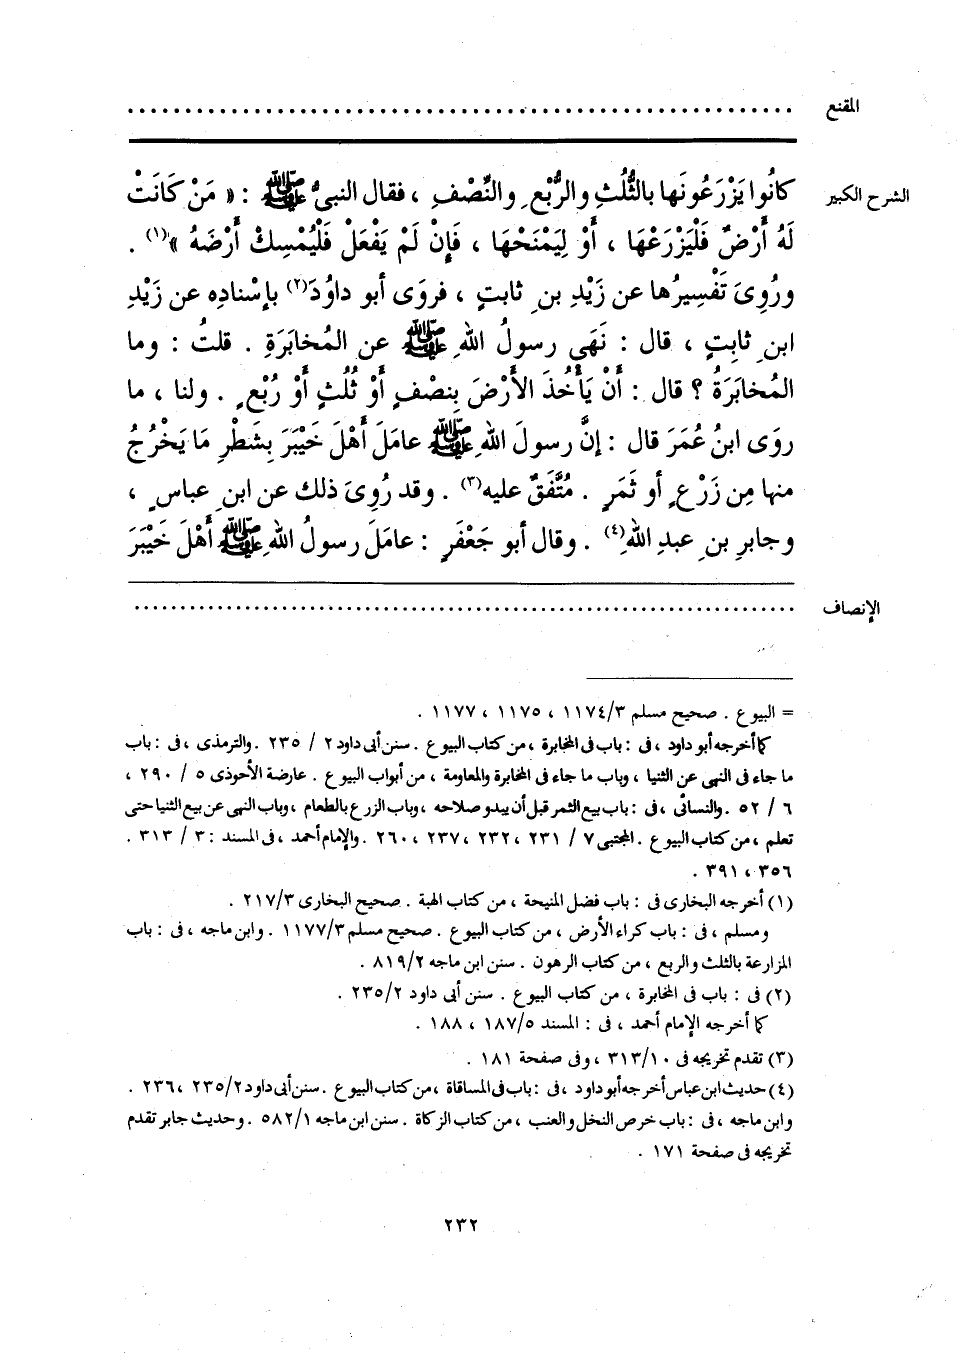 المقنع ................................................
الشرح الكبير كانُوا يَزْرَعُونَها بالثُّلُثِ والرُّبْعِ والنِّصْفِ ، فقال النبىُّ ﷺ : « مَنْ كَانَتْ
لَهُ أَرْضٌ فَلْيَزْرَعْهَا ، أَوْ لِيَمْنَحْهَا ، فَإِنْ لَمْ يَفْعَلْ فَلْيُمْسِكْ أَرْضَهُ »(١) .
ورُوِىَ تَفْسِيرُها عن زَيْدِ بنِ ثابتٍ ، فروَى أبو داوُدَ(٢) بإسْنادِه عن زَيْدِ
ابنِ ثابِتٍ ، قال : نَهَى رسولُ اللهِ ﷺ عن المُخابَرَةِ . قلتُ : وما
المُخابَرَةُ ؟ قال : أَنْ يَأْخُذَ الأَرْضَ بِنصْفٍ أَوْ ثُلُثٍ أَوْ رُبْعٍ . ولنا ، ما
روَى ابنُ عُمَرَ قال : إنَّ رسولَ اللهِ ﷺ عامَلَ أَهْلَ خَيْبَرَ بِشَطْرِ مَا يَخْرُجُ
منها مِن زَرْعٍ أو ثَمَرٍ . مُتَّفَقٌ عليه(٣) . وقد رُوِىَ ذلك عن ابنِ عباسٍ ،
وجابرِ بنِ عبدِ اللهِ(٤) . وقال أبو جَعْفَرٍ : عامَلَ رسولُ اللهِ ﷺ أَهْلَ خَيْبَرَ
الإنصاف ................................................
= البيوع . صحيح مسلم ١١٧٤/٣ ، ١١٧٥ ، ١١٧٧ .
كما أخرجه أبو داود ، فى : باب فى المخابرة ، من كتاب البيوع . سنن أبى داود ٢ / ٢٣٥ . والترمذى ، فى : باب
ما جاء فى النهى عن الثنيا ، وباب ما جاء فى المخابرة والمعاومة ، من أبواب البيوع . عارضة الأحوذى ٥ / ٢٩٠ ،
٦ / ٥٢ . والنسائى ، فى : باب بيع الثمر قبل أن يبدو صلاحه ، وباب الزرع بالطعام ، وباب النهى عن بيع الثنيا حتى
تعلم ، من كتاب البيوع . المجتبى ٧ / ٢٣١ ، ٢٣٢ ، ٢٣٧ ، ٢٦٠ . والإمام أحمد ، فى المسند : ٣ / ٣١٣ .
٣٥٦ ، ٣٩١ .
(١) أخرجه البخارى فى : باب فضل المنيحة ، من كتاب الهبة . صحيح البخارى ٢١٧/٣ .
ومسلم ، فى : باب كراء الأرض ، من كتاب البيوع . صحيح مسلم ١١٧٧/٣ . وابن ماجه ، فى : باب
المزارعة بالثلث والربع ، من كتاب الرهون . سنن ابن ماجه ٨١٩/٢ .
(٢) فى : باب فى المخابرة ، من كتاب البيوع . سنن أبى داود ٢٣٥/٢ .
كما أخرجه الإمام أحمد ، فى : المسند ١٨٧/٥ ، ١٨٨ .
(٣) تقدم تخريجه فى ٣١٣/١٠ ، وفى صفحة ١٨١ .
(٤) حديث ابن عباس أخرجه أبو داود ، فى : باب فى المساقاة ، من كتاب البيوع . سنن أبى داود ٢٣٥/٢ ، ٢٣٦ .
وابن ماجه ، فى : باب خرص النخل والعنب ، من كتاب الزكاة . سنن ابن ماجه ٥٨٢/١ . وحديث جابر تقدم
تخريجه فى صفحة ١٧١ .
٢٣٢